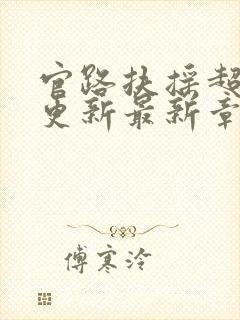 官路扶摇超
更新最新章
傅寒泠